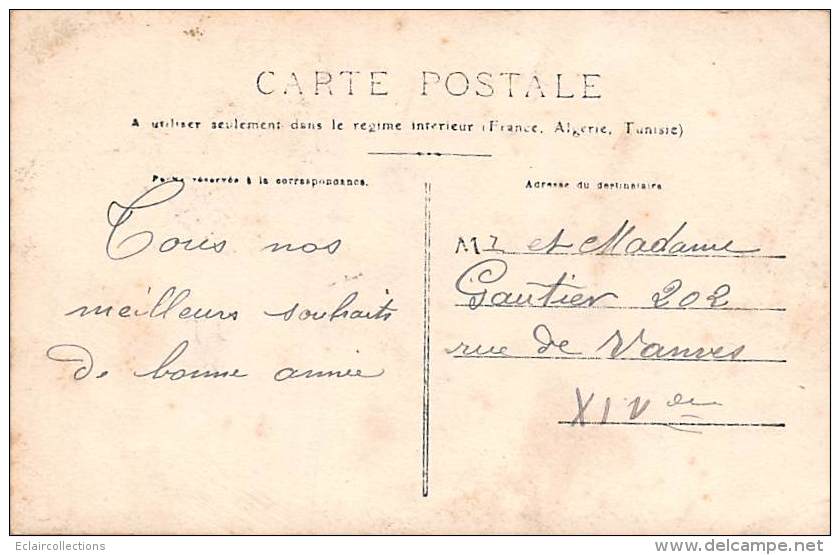 CARTE POSTALE
A utiliser seulement dans le régime intérieur (France, Algérie, Tunisie)
Partie réservée à la correspondance.
Adresse du destinataire
Tous nos
meilleurs souhaits
de bonne année
Mr et Madame
Gautier 202
rue de Vanves
XIV eme
Eclaircollections
www.delcampe.net